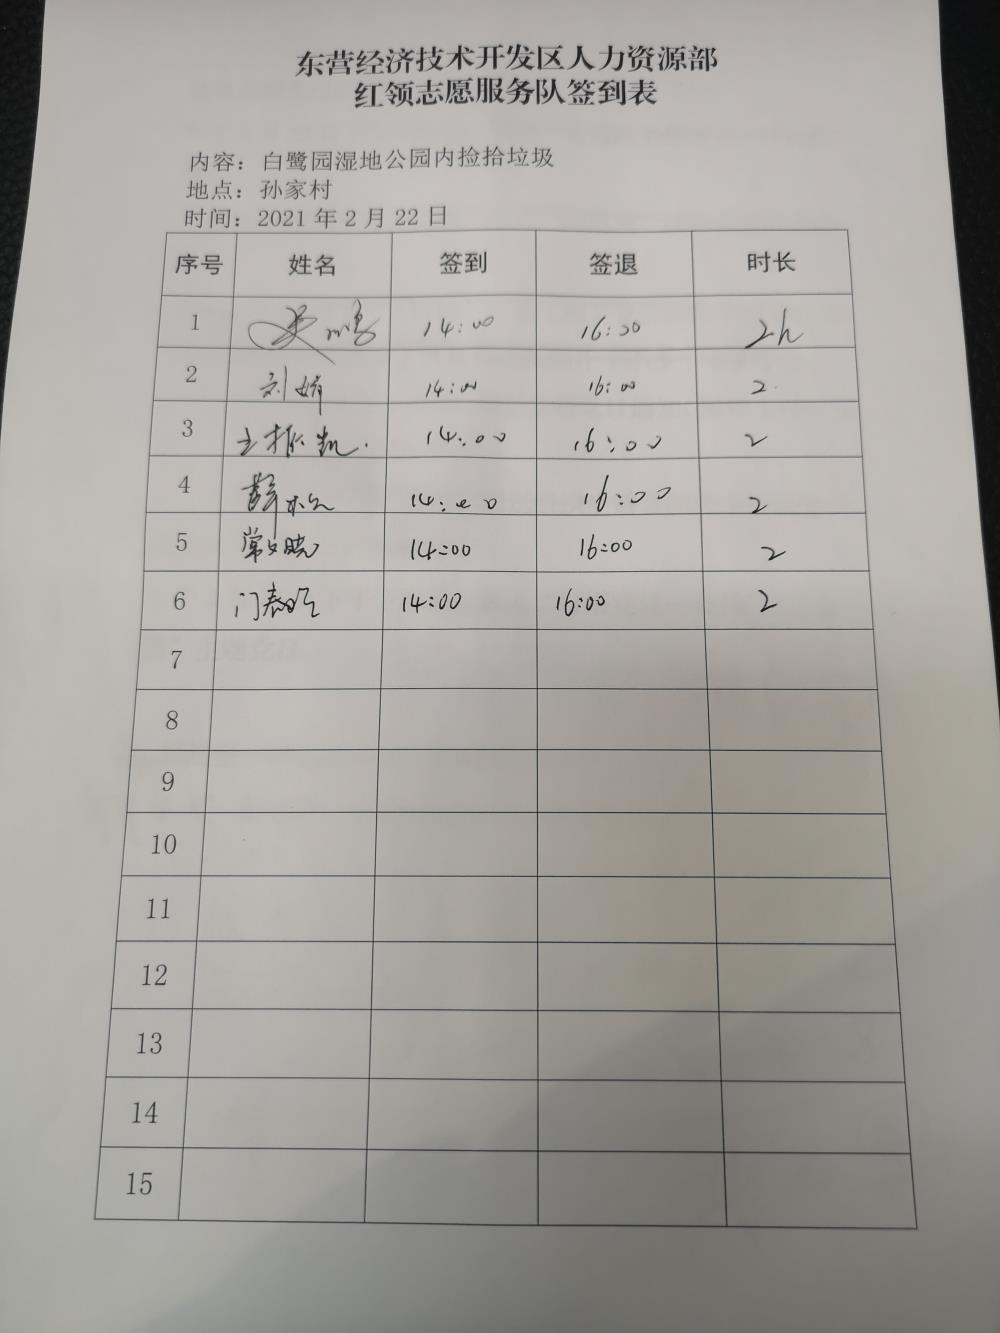 东营经济技术开发区人力资源部
红领志愿服务队签到表
内容：白鹭园湿地公园内捡拾垃圾
地点：孙家村
时间：2021年2月22日
序号 姓名 签到 签退 时长
1 14:00 16:00 2h
2 刘娟 14:00 16:00 2
3 王振凯 14:00 16:00 2
4 薛 14:00 16:00 2
5 常文晓 14:00 16:00 2
6 门春 14:00 16:00 2
7
8
9
10
11
12
13
14
15